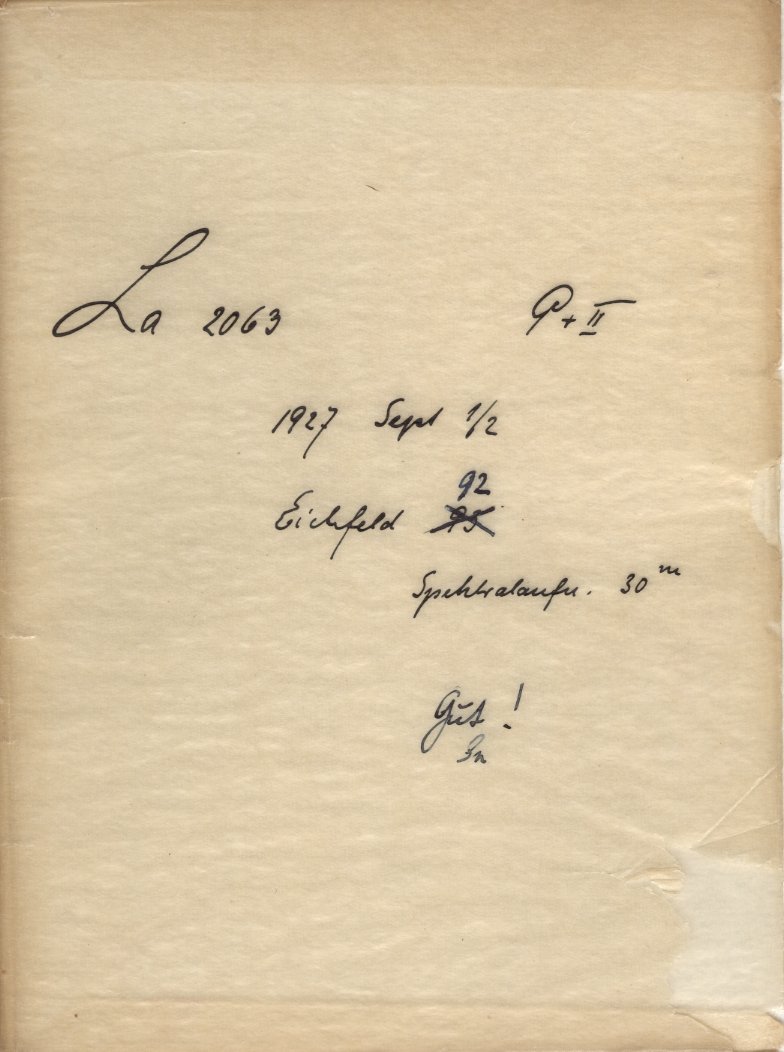 La 2063 P + II
1927 Sept 1/2
92
Eichfeld 95
Spektralaufn. 30m
Gut !